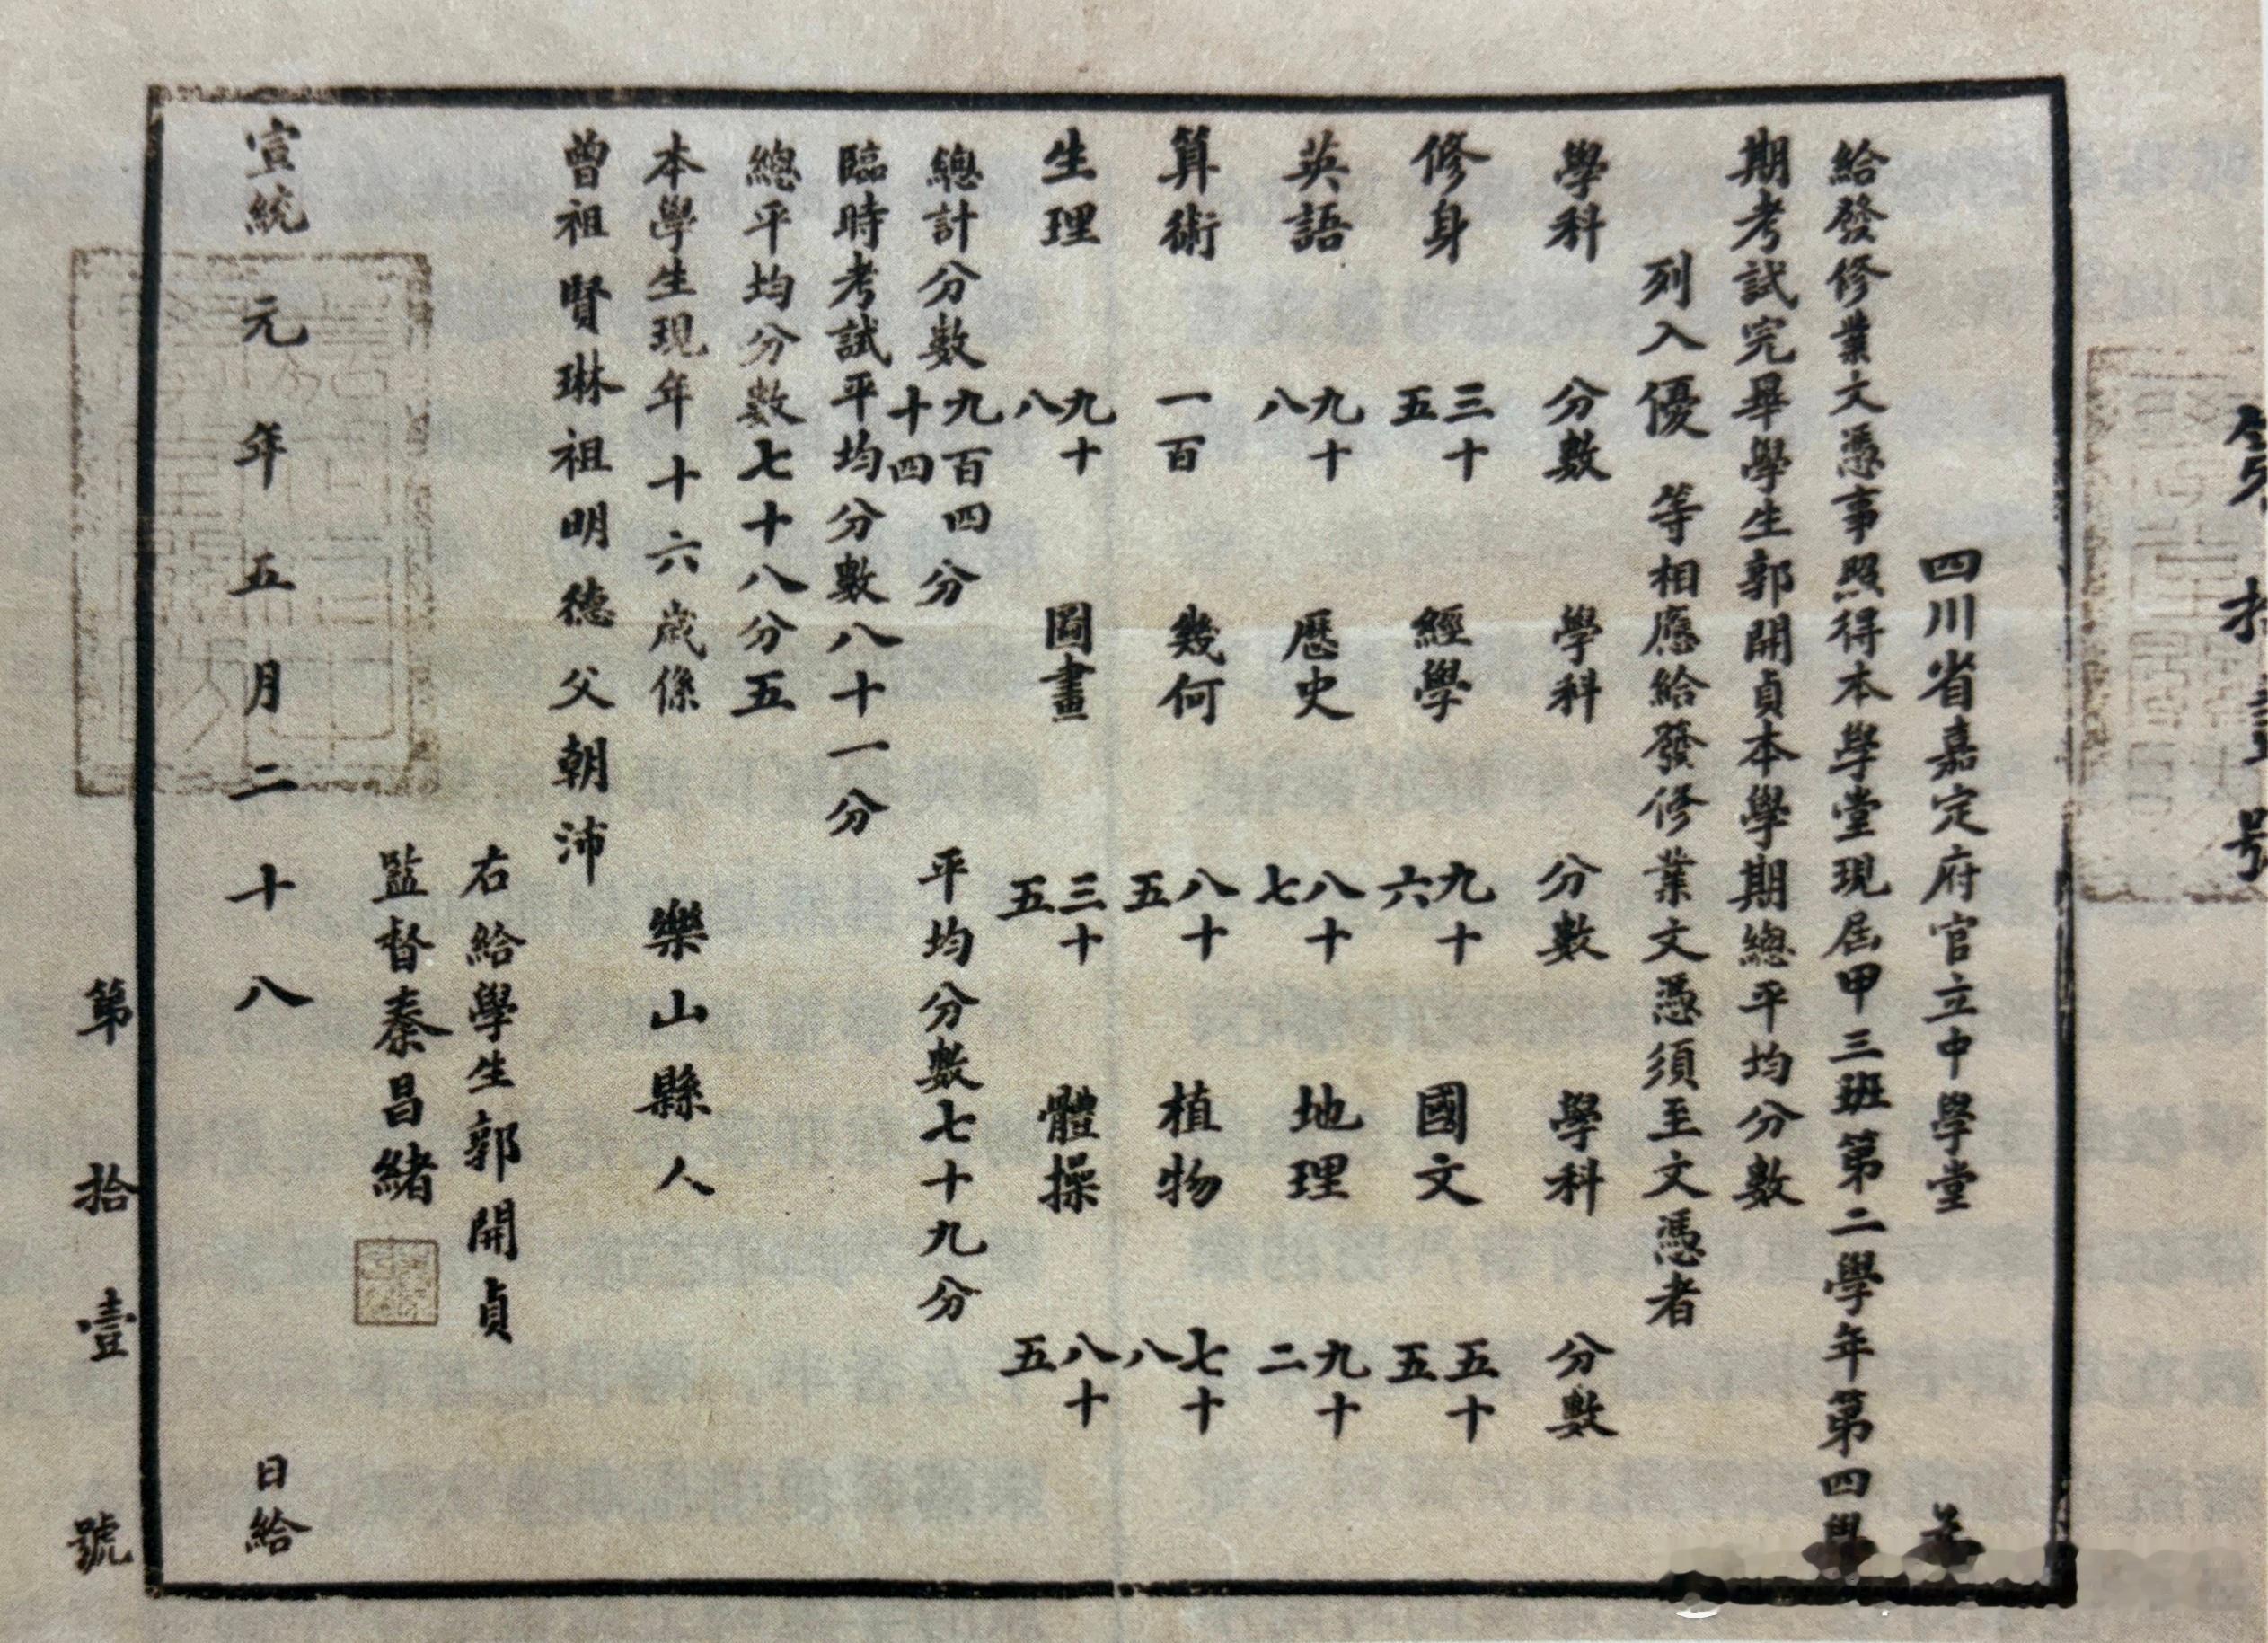 第拾壹號
四川省嘉定府官立中學堂 為
給發修業文憑事照得本學堂現屆甲三班第二學年第四學
期考試完畢學生郭開貞本學期總平均分數
列入優等相應給發修業文憑須至文憑者
學科 分數 學科 分數 學科 分數
修身 三十五 經學 九十六 國文 五十五
英語 九十八 歷史 八十七 地理 九十二
算術 一百 幾何 八十五 植物 七十八
生理 九十八 圖畫 三十五 體操 八十五
總計分數九百四十四分 平均分數七十九分
臨時考試平均分數八十一分
總平均分數七十八分五
本學生現年十六歲係 樂山縣人
曾祖賢琳祖明德父朝沛
右給學生郭開貞
監督秦昌緒
宣統元年五月二十八 日給
第拾壹號